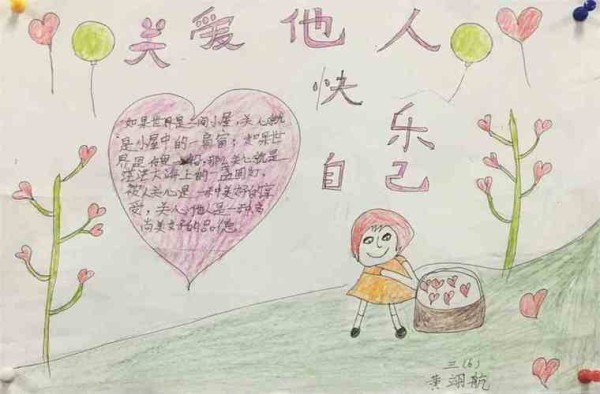 关爱他人
快
乐
自己
如果世界是一间小屋,关心就
是小屋中的一扇窗;如果世
界是一艘船,那么关心就是
茫茫大海上的一盏明灯。
被人关心是一种美好的享
受,关心他人是一种高
尚美好的品德。
三(6)
黄翊航